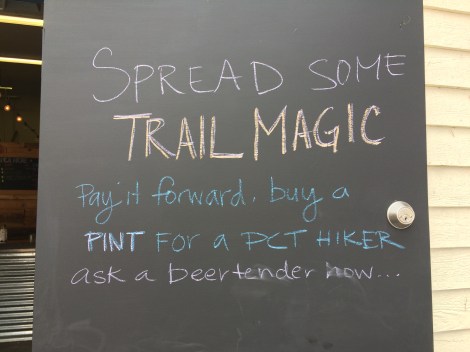 SPREAD SOME
TRAIL MAGIC
Pay it forward. buy a
PINT FOR a PCT HIKER
ask a beertender how...